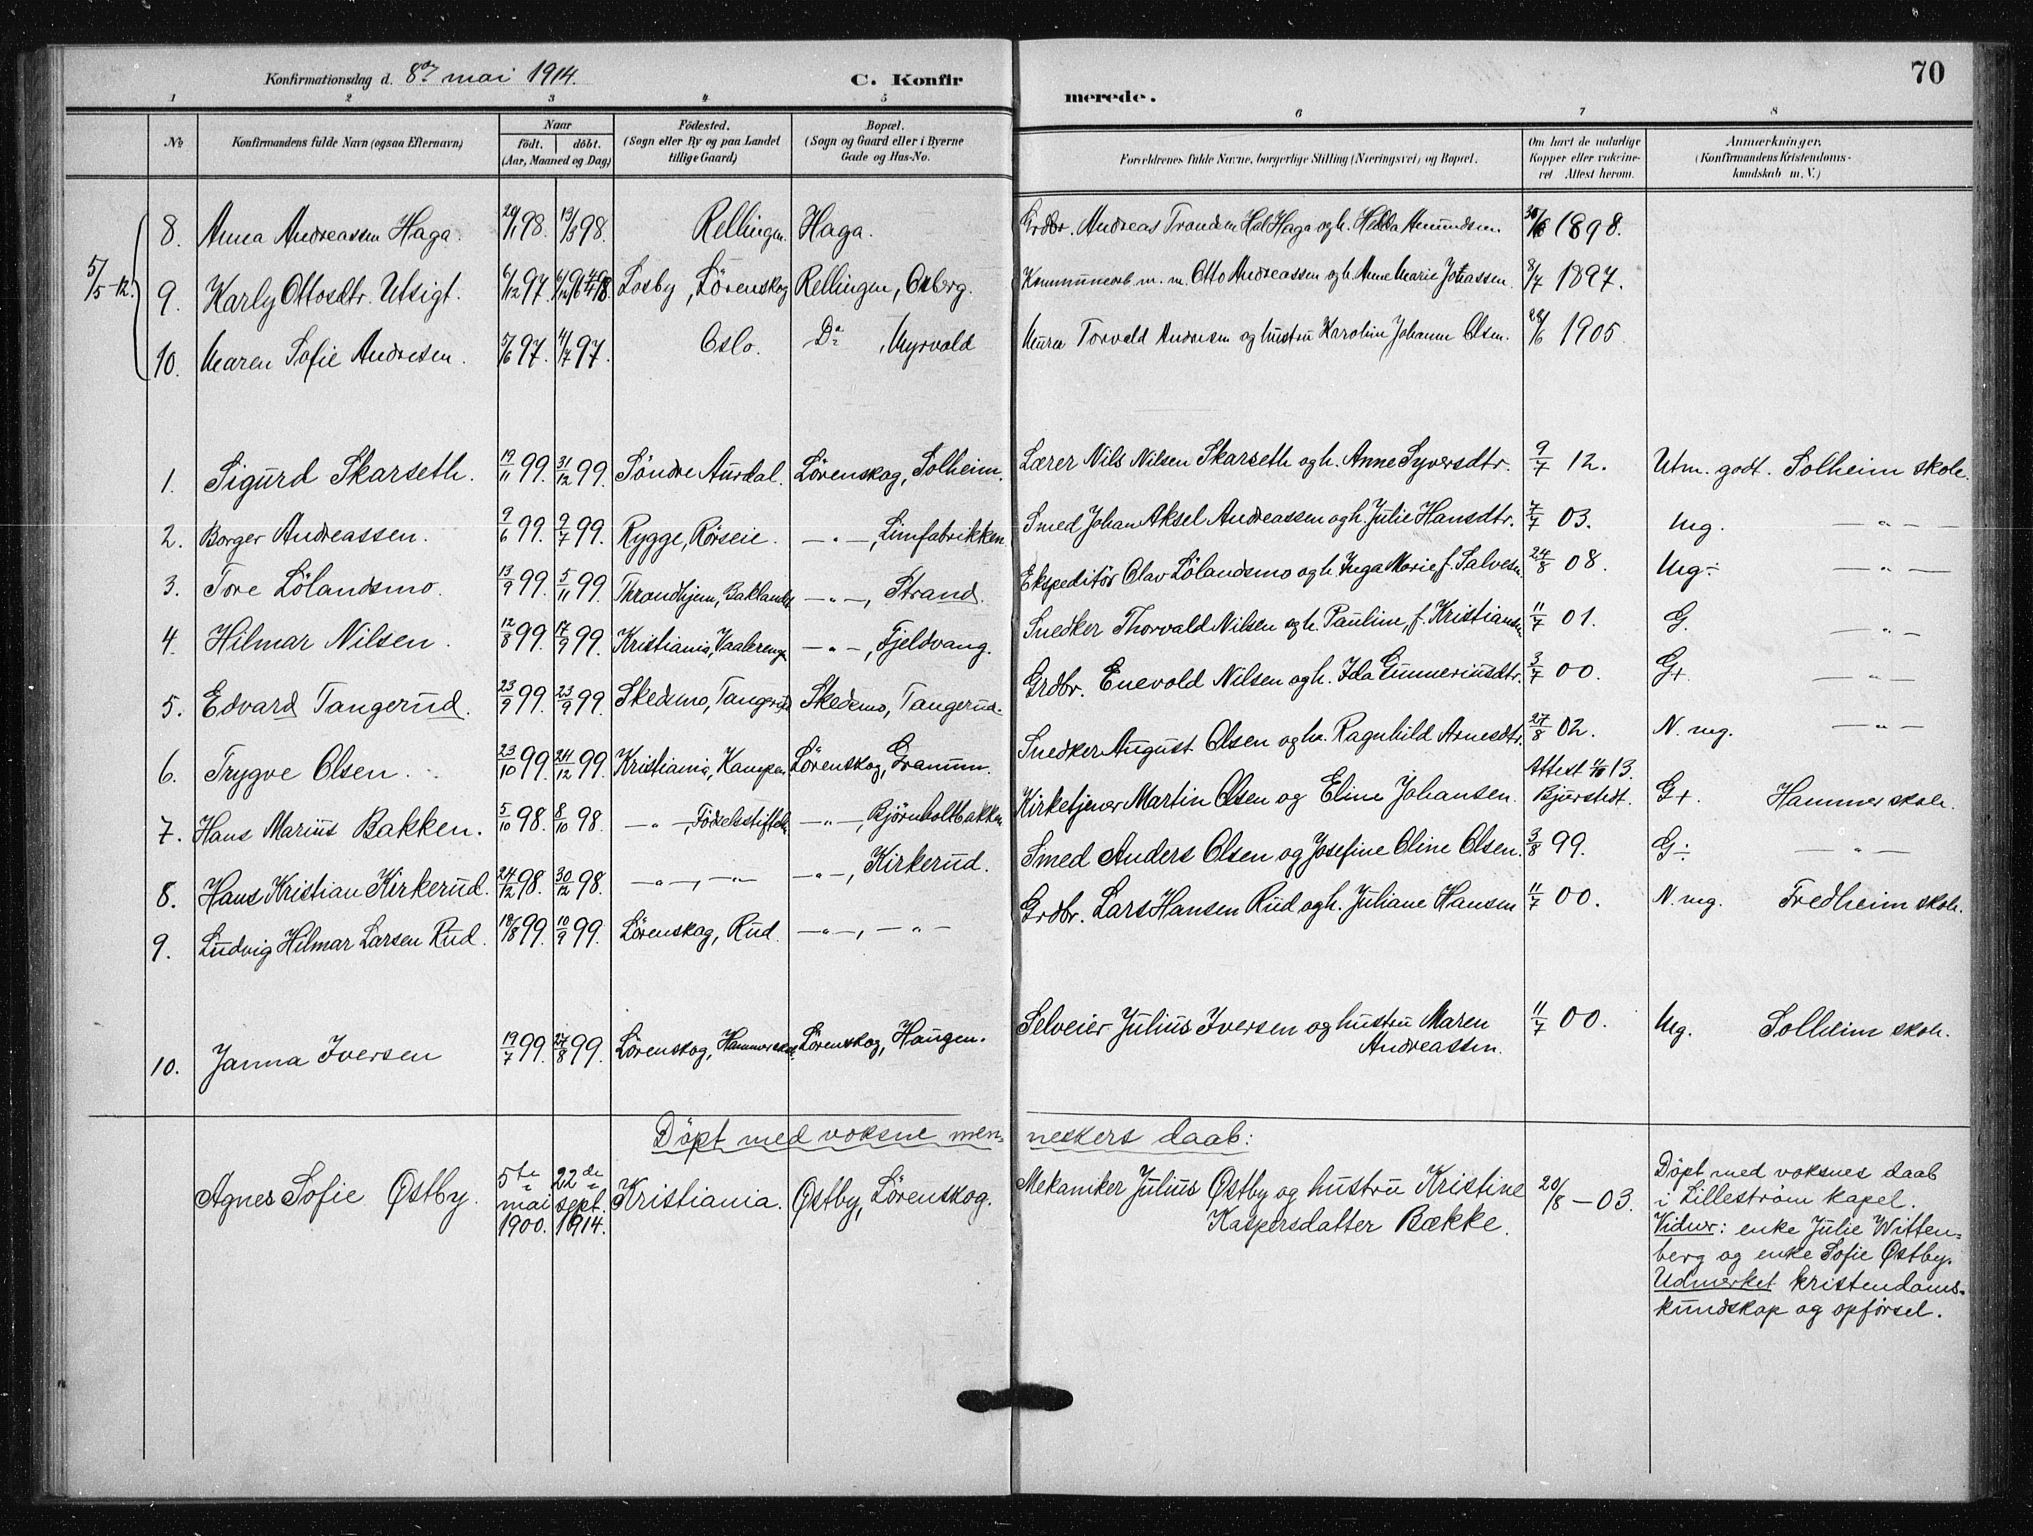 70
Konfirmationsdag d. 8de mai 1914. C. Konfirmerede.
1 2 3 4 5 6 7 8
№ Konfirmandens fulde Navn (ogsaa Efternavn) Naar født. døbt. (Aar, Maaned og Dag) Fødested. (Sogn eller By og paa Landet tillige Gaard) Bopæl. (Sogn og Gaard eller i Byerne Gade og Hus-No. Forældrenes fulde Navne, borgerlige Stilling (Næringsvei) og Bopæl. Om havt de naturlige Kopper eller vaksineret Attest herom. Anmærkninger. (Konfirmandens Kristendomskundskab m. V.)
5/5-12.
8. Anna Andreassen Haga. 20/1 98. 13/3 98. Rellingen. Haga. Grdbr. Andreas Haga og h. Hilda Amundsen. 1898.
9. Karly Ottosdtr. Utsigt. 6/12 97. Losby, Lörenskog Rellingen, Osberg. Otto Andreassen og h. Anne Marie Johassen. 8/7 1897.
10. Maren Sofie Andresen. 5/6 97. 4/7 97. Oslo. Do , Myrvold Murer Torvald Andresen og hustru Karoline Johanne Olsen. 1905
1. Sigurd Skarseth. 19/11 99. 31/12 99. Söndre Aurdal. Lörenskog, Solheim. Lærer Nils Nilsen Skarseth og h. Anne Syversdtr. 9/7 12. Utm. godt. Solheim skole.
2. Borger Andreassen. 9/6 99. 9/7 99. Rygge, Rörseie. —"—, Limfabrikken Smed Johan Aksel Andreassen og h. Julie Hansdtr. 7/7 03. Mg. —"—
3. Tore Lölandsmo. 13/9 99. 5/11 99. Throndhjem, Baklandet —"—, Strand. Ekspeditör Olav Lölandsmo og h. Inga Marie f. Salvesen 24/8 08. Mg÷ —"—
4. Hilmar Nilsen. 12/8 99. 17/9 99. Kristiania, Vaalerengen —"—, Fjeldvang. Snedker Thorvald Nilsen og h. Pauline f. Kristiansen 11/7 01. G. —"—
5. Edvard Tangerud. 23/9 99. 23/9 99. Skedsmo, Tangerud Skedsmo, Tangerud. Grdbr. Enevold Nilsen og h. Ida Gunneriusdtr. 3/7 00. G+. —"—
6. Trygve Olsen. 23/10 99. 24/12 99. Kristiania, Kampen Lörenskog, Granum. Snedker August Olsen og h. Ragnhild Arnesdtr. 27/8 02. N. mg. —"—
7. Hans Marius Bakken. 5/10 98. 8/10 98. —"—, Födselsstiftelse —"—, Björnholtbakken Kirketjener Martin Olsen og Eline Johansen. Attest 13. Bjurstedt. G+. Hammer skole.
8. Hans Kristian Kirkerud. 24/12 98. 30/12 98. —"—, —"— —"—, Kirkerud. Smed Anders Olsen og Josefine Oline Olsen. 3/8 99. G÷ —"—
9. Ludvig Hilmar Larsen Rud. 18/8 99. 10/9 99. Lörenskog, Rud. —"—, —"— Grdbr. Lars Hansen Rud og h. Juliane Hansen 11/7 00. N. mg. Fredheim skole.
10. Janna Iversen 19/7 99. 27/8 99. Lörenskog, Hammer skole Lörenskog, Haugen. Selveier Julius Iversen og hustru Maren Andreassen. 11/7 00. Mg. Solheim skole.
Döpt med voksne menneskers daab:
Agnes Sofie Østby. 5te mai 1900. 22de sept. 1914. Kristiania. Østby, Lörenskog. Mekaniker Julius Østby og hustru Kristine Kaspersdatter Bække. 20/8 — 03. Döpt med voksnes daab
i Lilleström kapel.
Vidner: enke Julie Witten-
berg og enke Sofie Østby.
Udmerket kristendoms-
kundskap og opførsel.